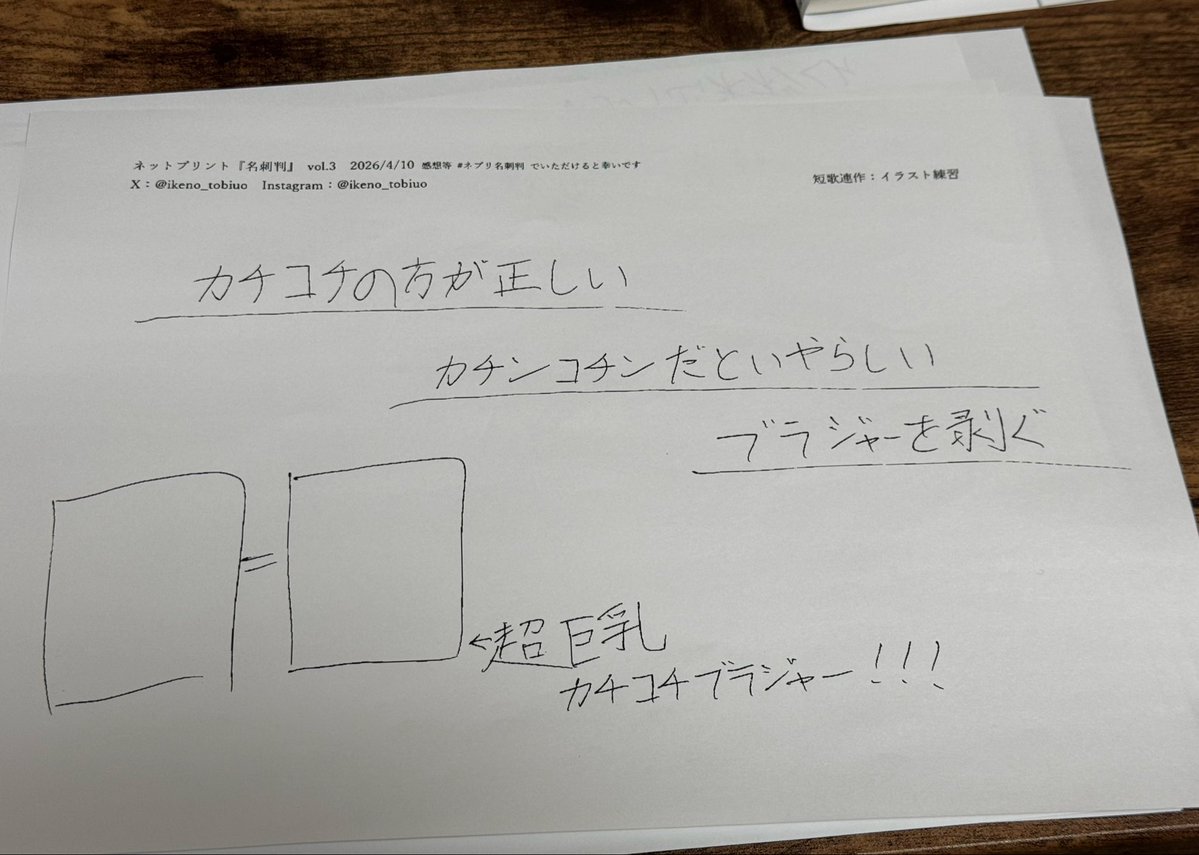 ネットプリント『名刺判』 vol.3 2026/4/10 感想等 #ネプリ名刺判 でいただけると幸いです
X：@ikeno_tobiuo Instagram：@ikeno_tobiuo
短歌連作：イラスト練習
カチコチの方が正しい
カチンコチンだといやらしい
ブラジャーを剥ぐ
←超巨乳
カチコチブラジャー!!!